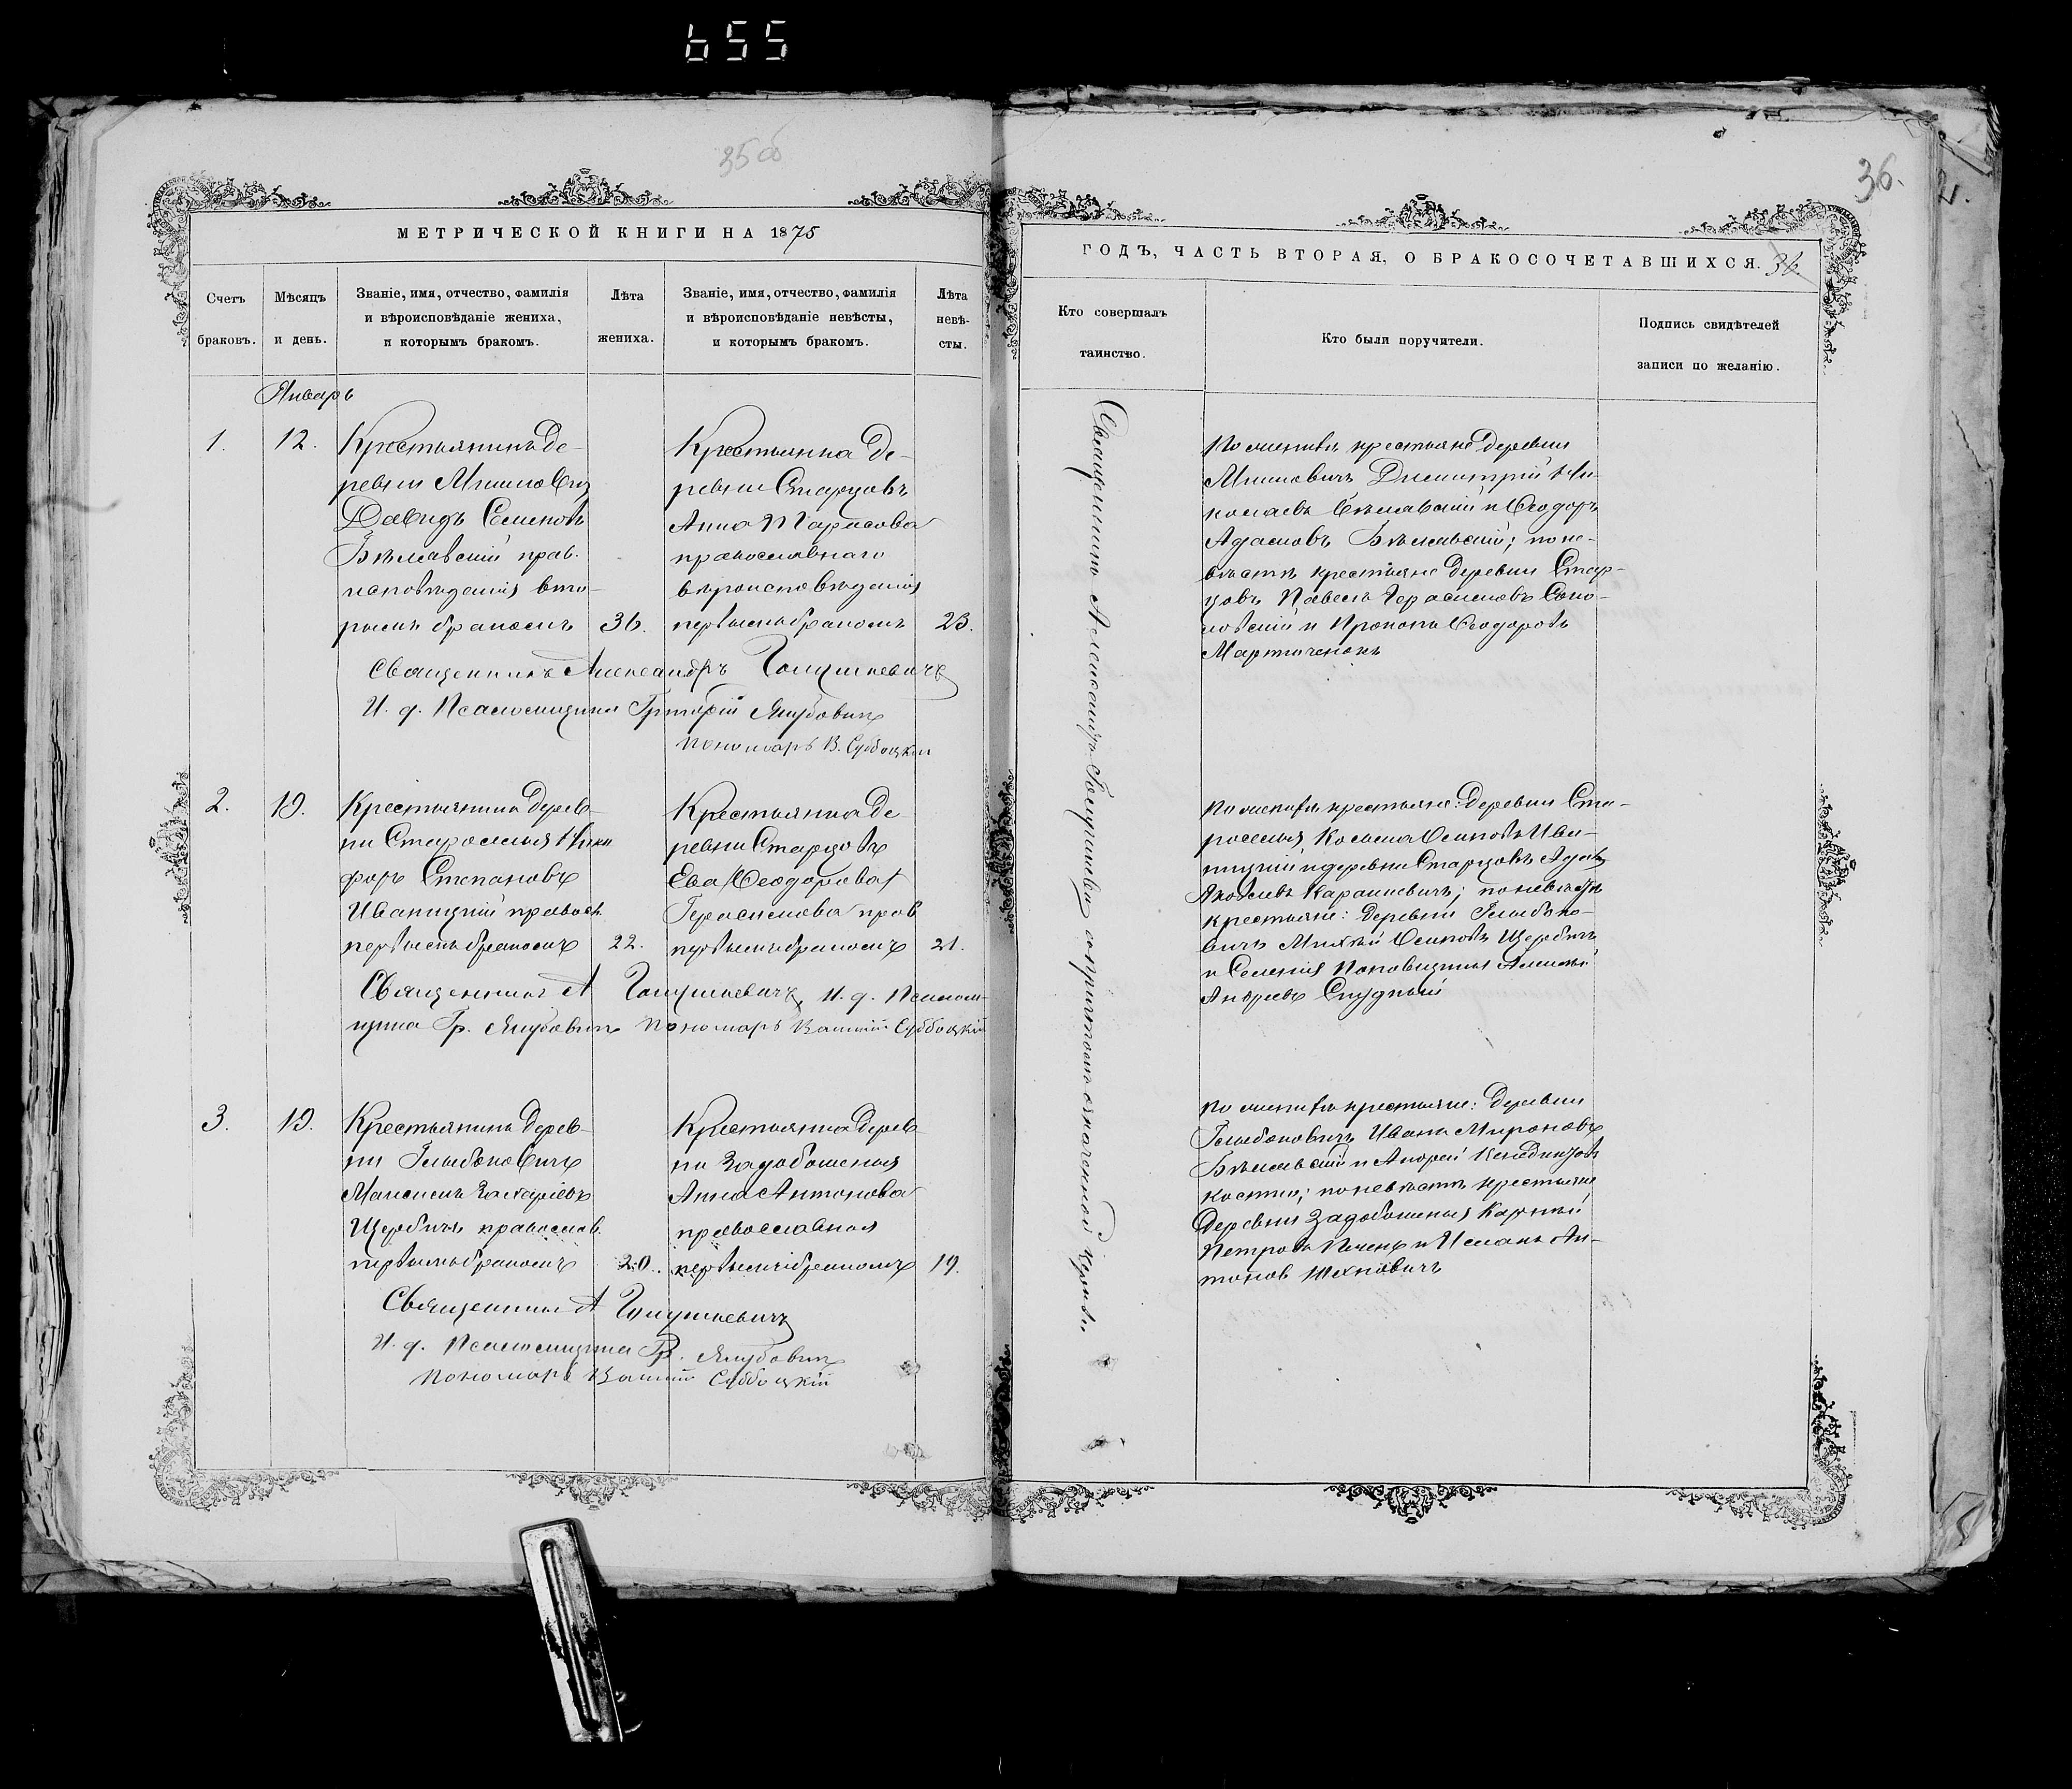 655
35 об
36.
МЕТРИЧЕСКОЙ КНИГИ НА 1875
Счетъ браковъ.
Мѣсяцъ и день.
Званіе, имя, отчество, фамилія
и вѣроисповѣданіе жениха,
и которымъ бракомъ.
Лѣта жениха.
Званіе, имя, отчество, фамилія
и вѣроисповѣданіе невѣсты,
и которымъ бракомъ.
Лѣта невѣ-
сты.
Январь
1.
12.
Крестьянинъ де-
ревни
Давидъ Семеновъ
Бѣлявскій прав.
исповѣданія вто-
рымъ бракомъ
36.
Крестьянка де-
ревни Старцовъ
Анна Тарасова
православнаго
вѣроисповѣданія
первымъ бракомъ
23.
Священникъ Александръ
И. д. Псаломщика Григорій Якубовичъ
Пономарь В. Субботскій
2.
19.
Крестьянинъ дерев-
ни Староселья Ники-
форъ Степановъ
Иваницкій правосл.
первымъ бракомъ
22.
Крестьянка де
ревни Старцовъ
Ева Ѳеодорова
Герасимова прав
первымъ бракомъ
21.
Священникъ А
И. д. Псалом-
щика Гр. Якубовичъ Пономарь Субботскій
3.
19.
Крестьянинъ дерев-
ни Глыбоковичъ
Максимъ Захаріевъ
Щербичъ православ.
первымъ бракомъ
20.
Крестьянка дерев-
ни Задобошенья
Анна Антонова
православная
первымъ бракомъ
19.
Священникъ А
И. д. Псаломщика Гр. Якубовичъ
Пономарь Субботскій
ГОДЪ, ЧАСТЬ ВТОРАЯ, О БРАКОСОЧЕТАВШИХСЯ. 36
Кто совершалъ
таинство.
Кто были поручители.
Подпись свидѣтелей
записи по желанію.
Священникъ Александръ съ причтомъ означенной церкви.
По женихѣ крестьяне деревни
Димитрій Ни-
колаевъ Бѣлявскій и Ѳеодоръ
Адамовъ Бѣлявскій; по не-
вѣстѣ крестьяне деревни Стар-
цовъ Павелъ Герасимовъ
и Прокопъ Ѳеодоровъ
Мартиченокъ
По женихѣ крестьяне: деревни Ста-
роселья Косьма Осиповъ Ива-
ницкій и деревни Старцовъ Адамъ
Яковлевъ; по невѣстѣ
крестьяне: деревни Глыбоко-
вичъ Михей Осиповъ Щербичъ
и Селенія
Андреевъ
По женихѣ крестьяне: деревни
Глыбоковичъ Иванъ Мироновъ
Бѣлявскій и Андрей
по невѣстѣ крестьяне
деревни Задобошенья
Петровъ и Ан-
тоновъ